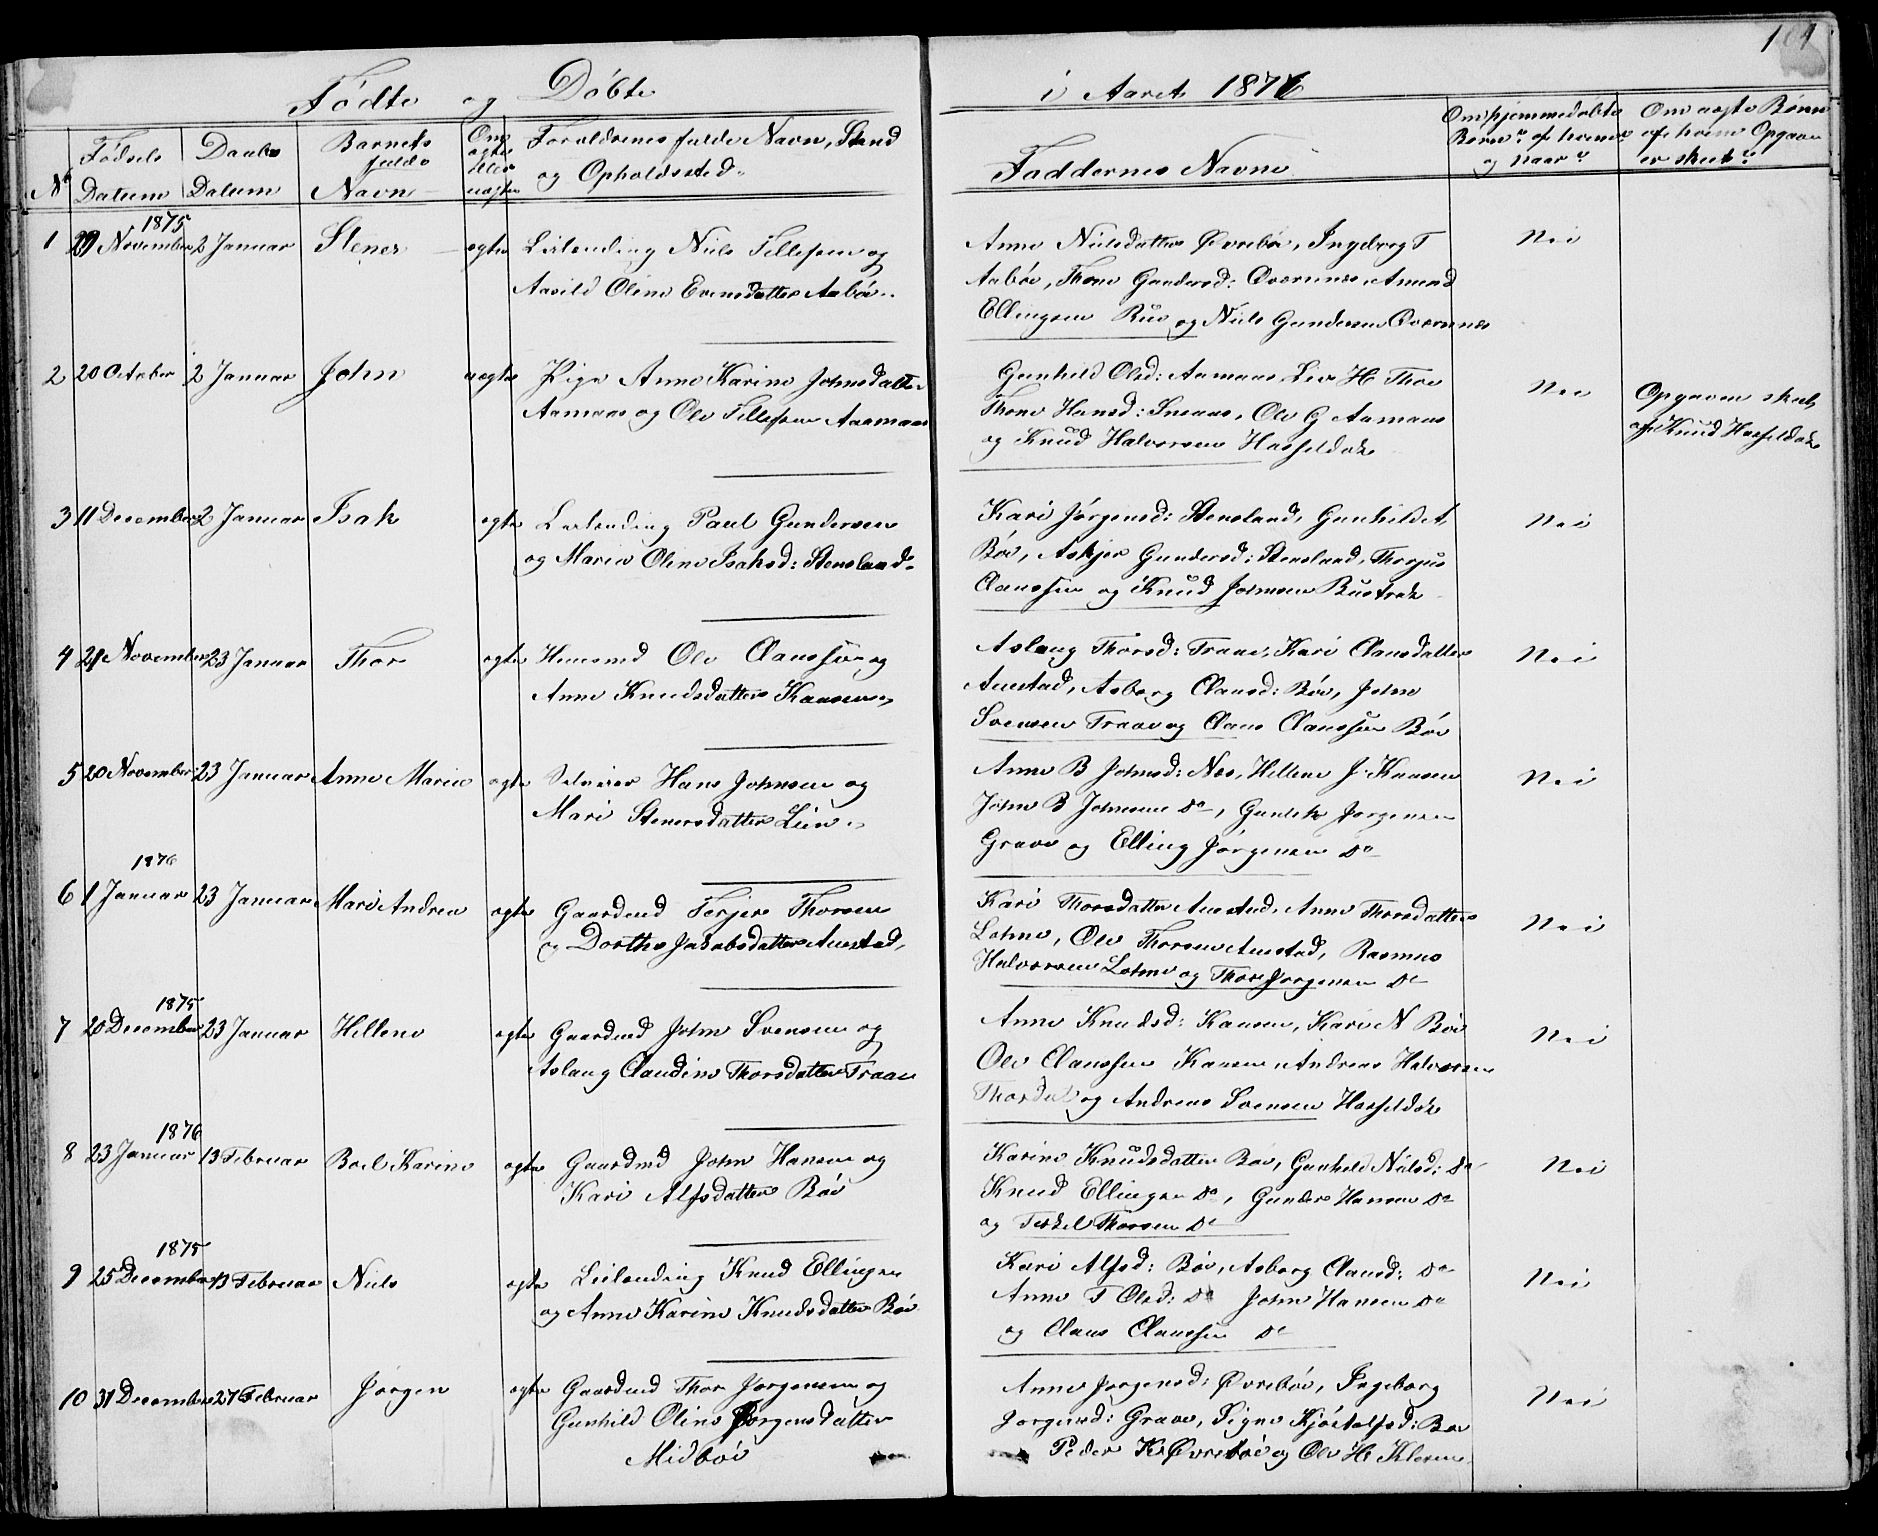 101
Fødte og Døbte i Aaret 1876
Nº
Fødsels Datum
Daabs Datum
Barnets fulde Navn
Om ægte eller uægte
Forældrenes fulde Navn, Stand
og Opholdssted.
Faddernes Navne
Om hjemmedøbte
Børn? af hvem?
og Naar?
Om uægte Børn
af hvem Opgaven
er skeet?
1875
1 29 November 2 Januar Stener ægte Leilending Niels Tellefsen og
Aasild Oline Evensdatter Aabøe.
Anne Nielsdatter Øvrebøe, Ingeborg T
Aabøe, Thone Gundersd: Qværnnes, Amund
Ellingsen Rue og Niels Gundersen Qværnnes
Nei
2 20 October 2 Januar John uægte Pige Anne Karine Johnsdatter
Aamaas og Ole Tellefsen Aamaas
Gunhild Olsd: Aamaas Live H Thoe
Thone Hansd: Snaas, Ole G Aamaas
og Knud Halvorsen Hasseldok
Nei
Opgaven skeet
af Knud Hasseldok
3 11 December 2 Januar Isak ægte Leilending Paul Gundersen
og Maria Oline Isaksd: Stensland.
Kari Jørgensd: Stensland, Gunhild A,
Bøe, Askjer Gundersd: Stensland, Thorjus
Clanssen og Knud Johnsen Bustrak
Nei
4 21 November 23 Januar Thor ægte Huusmd Ole Clanssen og
Anne Knudsdatter Kaasen,
Aslaug Thorsd: Traae, Kari Clansdatter
Auestad, Asborg Clansd: Bøe, John
Svensen Traae og Claus Claussen Bøe
Nei
5 20 November 23 Januar Anne Marie ægte Selveier Hans Johnsen og
Mari Stenersdatter Lien.
Anne B Johnsd: Næs, Hellene J. Kaasen
John B Johnsen do, Gunlek Jørgensen
Grave og Elling Jørgensen do
Nei
1876
6 1 Januar 23 Januar Mari Andrea ægte Gaardmd Terjer Thorsen
og Dorthe Jakobsdatter Auestad,
Kari Thorsdatter Auestad, Anne Thorsdatter
Lohne, Ole Thorsen Auestad, Rasmus
Halvorsen Lohne og Thor Jørgensen do
Nei
1875
7 20 December 23 Januar Hellene ægte Gaardmd John Svensen og
Aslaug Claudine Thorsdatter Traae
Anne Knudsd: Kaasen, Kari N Bøe
Ole Clanssen Kaasen, Andreas Halvorsen
og Andreas Svensen Hasseldok
Nei
1876
8 23 Januar 13 Februar Boel Karine ægte Gaardmd John Hansen og
Kari Alfsdatter Bøe
Karine Knudsdatter Bøe, Gunhild Nielsd: do
Knud Ellingsen do, Gunder Hansen do
og Terkel Thorsen do
Nei
1875
9 25 December 13 Februar Niels ægte Leilending Knud Ellingsen
og Anne Karine Knudsdatter Bøe
Kari Alfsd: Bøe, Asborg Clausd: do
Anne T Olsd: do John Hansen do
og Claus Claussen do
Nei
10 31 December 27 Februar Jørgen ægte Gaardmd Thor Jørgensen og
Gunhild Oline Jørgensdatter
Midbøe
Anne Jørgensd: Øvrebøe, Ingeborg
Jørgensd: Grave, Signe Kjøstolfsd: Bøe
Peder K Øvrebøe og Ole H Kleven
Nei